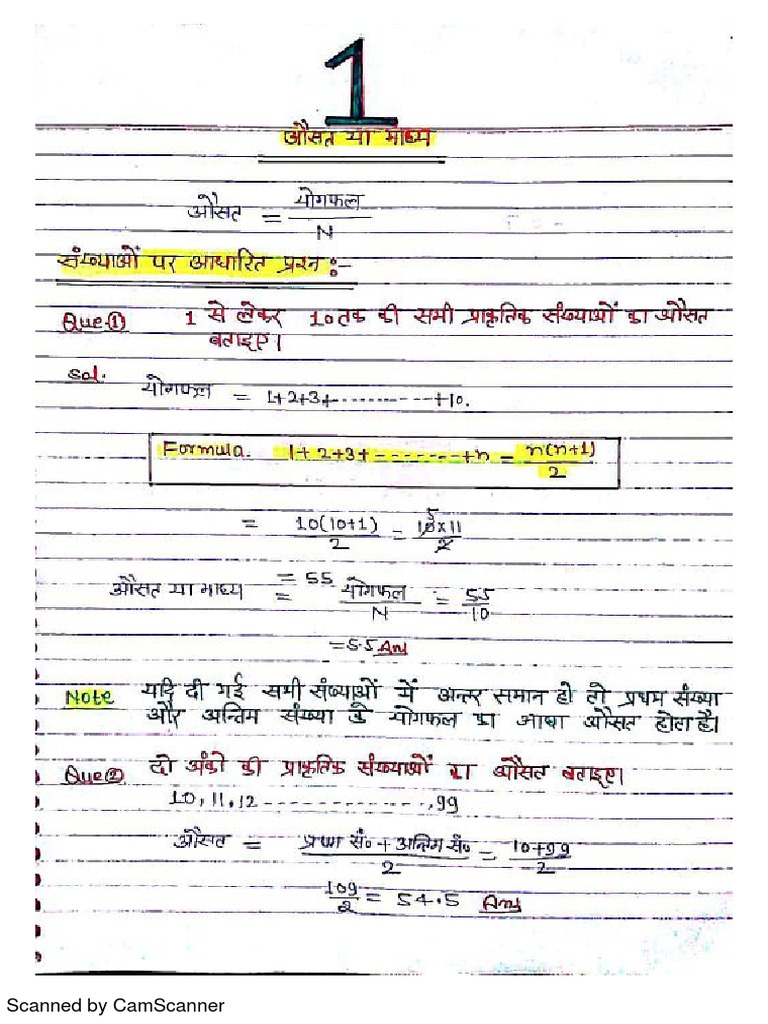 1
औसत या माध्य
औसत = योगफल / N
संख्याओं पर आधारित प्रश्न :-
Que.(1) 1 से लेकर 10 तक की सभी प्राकृतिक संख्याओं का औसत
बताइए।
Sol. योगफल = 1+2+3+----------+10.
Formula. 1+2+3+-------+n = n(n+1)/2
= 10(10+1)/2 = 10×11/2 5
= 55
औसत या माध्य = योगफल/N = 55/10
= 5.5 Ans
Note यदि दी गई सभी संख्याओं में अन्तर समान हो तो प्रथम संख्या
और अन्तिम संख्या के योगफल का आधा औसत होता है।
Que(2) दो अंको की प्राकृतिक संख्याओं का औसत बताइए।
10, 11, 12 --------------, 99
औसत = प्रथम सं० + अन्तिम सं०/2 = 10+99/2
109/2 = 54.5 Ans
Scanned by CamScanner